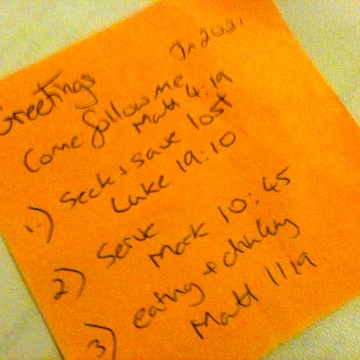 Jn 20:21
Greetings
Come follow me
Matt 4:19
1.) Seek + save lost
Luke 19:10
2) Serve
Mark 10:45
3) eating + drinking
Matt 11:19.